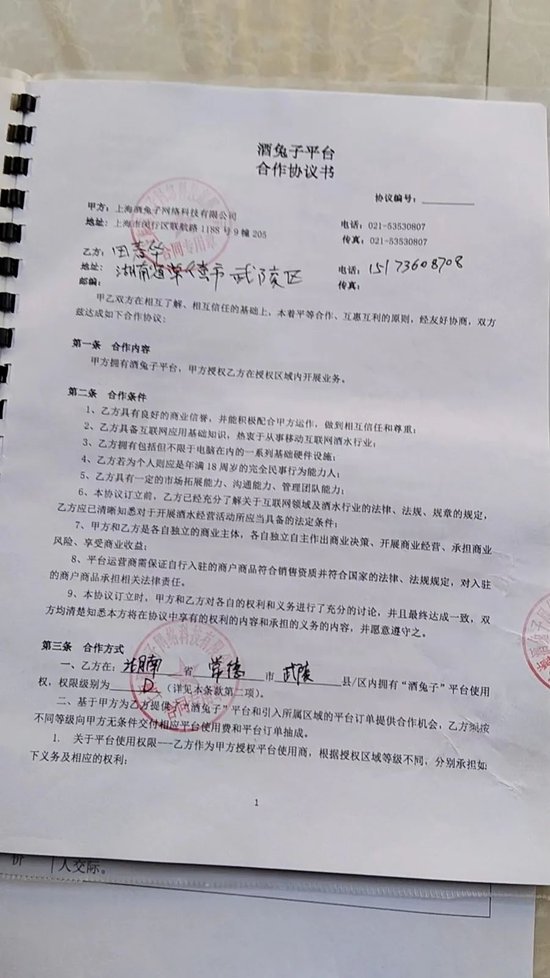 酒兔子平台
合作协议书
协议编号：
甲方：上海酒兔子网络科技有限公司
电话：021-53530807
地址：上海市闵行区联航路1188号9幢205
传真：021-53530807
乙方：田
电话：15173608708
地址：湖南省常德市武陵区
邮编：
传真：
甲乙双方在相互了解、相互信任的基础上，本着平等合作、互惠互利的原则，经友好协商，双方
兹达成如下合作协议：
第一条 合作内容
甲方拥有酒兔子平台，甲方授权乙方在授权区域内开展业务。
第二条 合作条件
1、乙方具有良好的商业信誉，并能积极配合甲方运作，做到相互信任和尊重；
2、乙方具备互联网应用基础知识，热衷于从事移动互联网酒水行业；
3、乙方拥有包括但不限于电脑在内的一系列基础硬件设施；
4、乙方若为个人则应是年满18周岁的完全民事行为能力人；
5、乙方具有一定的市场拓展能力、沟通能力、管理团队能力；
6、本协议订立前，乙方已经充分了解关于互联网领域及酒水行业的法律、法规、规章的规定，
乙方应已清晰知悉对于开展酒水经营活动所应当具备的法定条件；
7、甲方和乙方是各自独立的商业主体，各自独立自主作出商业决策、开展商业经营、承担商业
风险、享受商业收益；
8、平台运营商需保证自行入驻的商户商品符合销售资质并符合国家的法律、法规规定，对入驻
的商户商品承担相关法律责任。
9、本协议订立时，甲方和乙方对各自的权利和义务进行了充分的讨论，并且最终达成一致，双
方均清楚知悉本方将在协议中享有的权利的内容和承担的义务的内容，并愿意遵守之。
第三条 合作方式
一、乙方在：湖南省常德市武陵县/区内拥有“酒兔子”平台使用
权，权限级别为D（详见本条款第二项）。
二、基于甲方为乙方提供“酒兔子”平台和引入所属区域的平台订单提供合作机会，乙方须按
不同等级向甲方无条件交付相应平台使用费和平台订单抽成。
1. 关于平台使用权限---乙方作为甲方授权平台使用商，根据授权区域等级不同，分别承担如
下义务及相应的权利：
1
人交际。